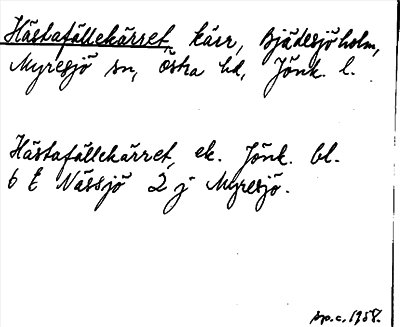 Hästafällekärret, kärr, Bjädesjöholm,
Myresjö sn, Östra hd, Jönk. l.
Hästafällekärret, ek. Jönk. bl.
6 E Nässjö 2 j Myresjö.
sp.c. 1958.